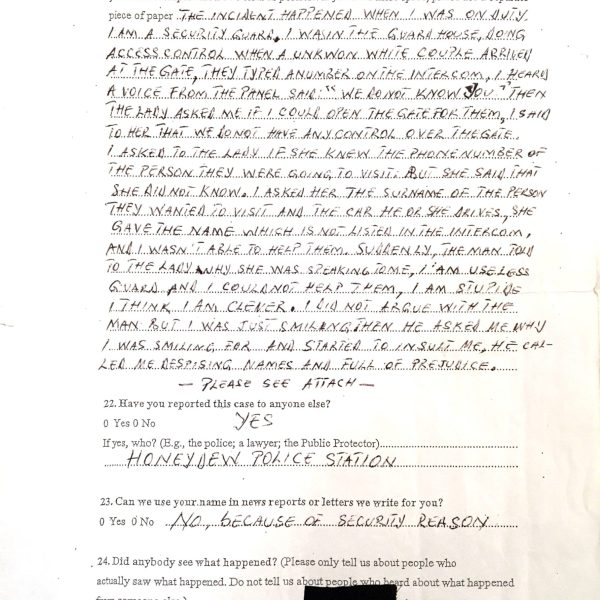 piece of paper THE INCIDENT HAPPENED WHEN I WAS ON DUTY.
I AM A SECURITY GUARD. I WAS IN THE GUARD HOUSE, DOING
ACCESS CONTROL WHEN A UNKWON WHITE COUPLE ARRIVED
AT THE GATE, THEY TYPED A NUMBER ON THE INTERCOM, I HEARD
A VOICE FROM THE PANEL SAID: "WE DO NOT KNOW YOU" THEN
THE LADY ASKED ME IF I COULD OPEN THE GATE FOR THEM, I SAID
TO HER THAT WE DO NOT HAVE ANY CONTROL OVER THE GATE.
I ASKED TO THE LADY IF SHE KNEW THE PHONE NUMBER OF
THE PERSON THEY WERE GOING TO VISIT. BUT SHE SAID THAT
SHE DID NOT KNOW. I ASKED HER THE SURNAME OF THE PERSON
THEY WANTED TO VISIT AND THE CAR HE OR SHE DRIVES, SHE
GAVE THE NAME WHICH IS NOT LISTED IN THE INTERCOM,
AND I WASN'T ABLE TO HELP THEM. SUDDENLY, THE MAN TOLD
TO THE LADY WHY SHE WAS SPEAKING TO ME, I AM USELESS
GUARD AND I COULD NOT HELP THEM, I AM STUPIDE
I THINK I AM CLEVER. I DID NOT ARGUE WITH THE
MAN BUT I WAS JUST SMILANG, THEN HE ASKED ME WHY
I WAS SMILING FOR AND STARTED TO INSULT ME, HE CAL-
LED ME DESPISING NAMES AND FULL OF PREJUDICE.
— PLEASE SEE ATTACH —
22. Have you reported this case to anyone else?
0 Yes 0 No YES
If yes, who? (E.g., the police; a lawyer; the Public Protector)
HONEYDEW POLICE STATION
23. Can we use your name in news reports or letters we write for you?
0 Yes 0 No NO, BECAUSE OF SECURITY REASON
24. Did anybody see what happened? (Please only tell us about people who
actually saw what happened. Do not tell us about people who heard about what happened
from someone else.)